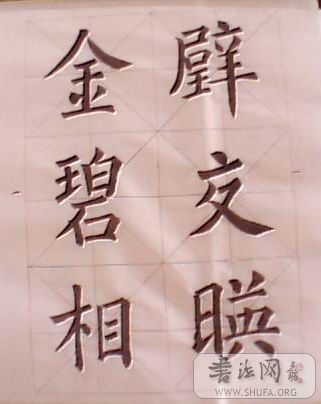 辟交暎
金碧相
書法网
WWW.SHUFA.ORG